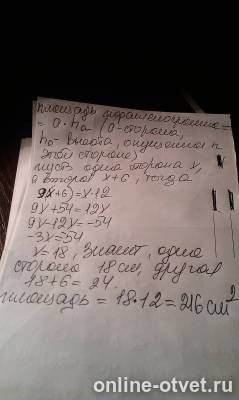 площадь параллелограмма =
= a · ha (a-сторона,
ha-высота, опущенная к
этой стороне)
пусть одна сторона x,
а вторая x+6, тогда
9(x+6)=x·12
9x+54=12x
9x-12x=-54
-3x=-54
x=18, значит, одна
сторона 18 см, другая
18+6=24
площадь = 18·12=216 см²
online-otvet.ru